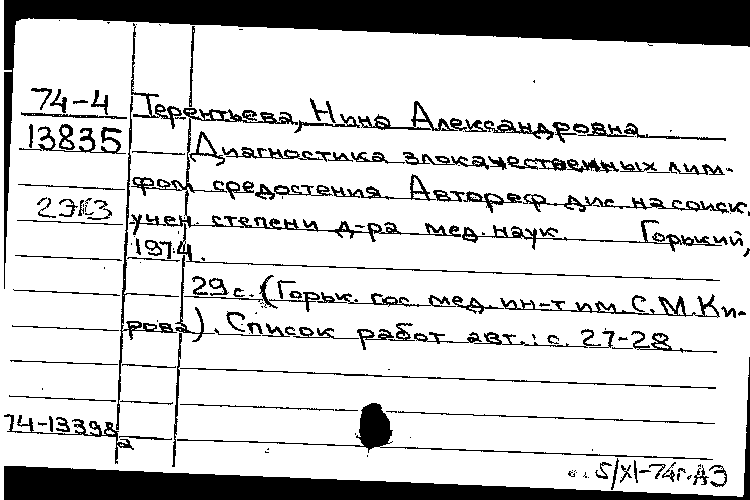 74-4 Терентьева, Нина Александровна.
13835 Диагностика злокачественных лим-
фом средостения. Автореф. дис. на соиск.
2ЭКЗ учен. степени д-ра мед. наук. Горький,
1974.
29 с. (Горьк. гос. мед. ин-т им. С. М. Ки-
рова). Список работ авт.: с. 27-28.
74-13398
а
5/XI-74г. АЗ